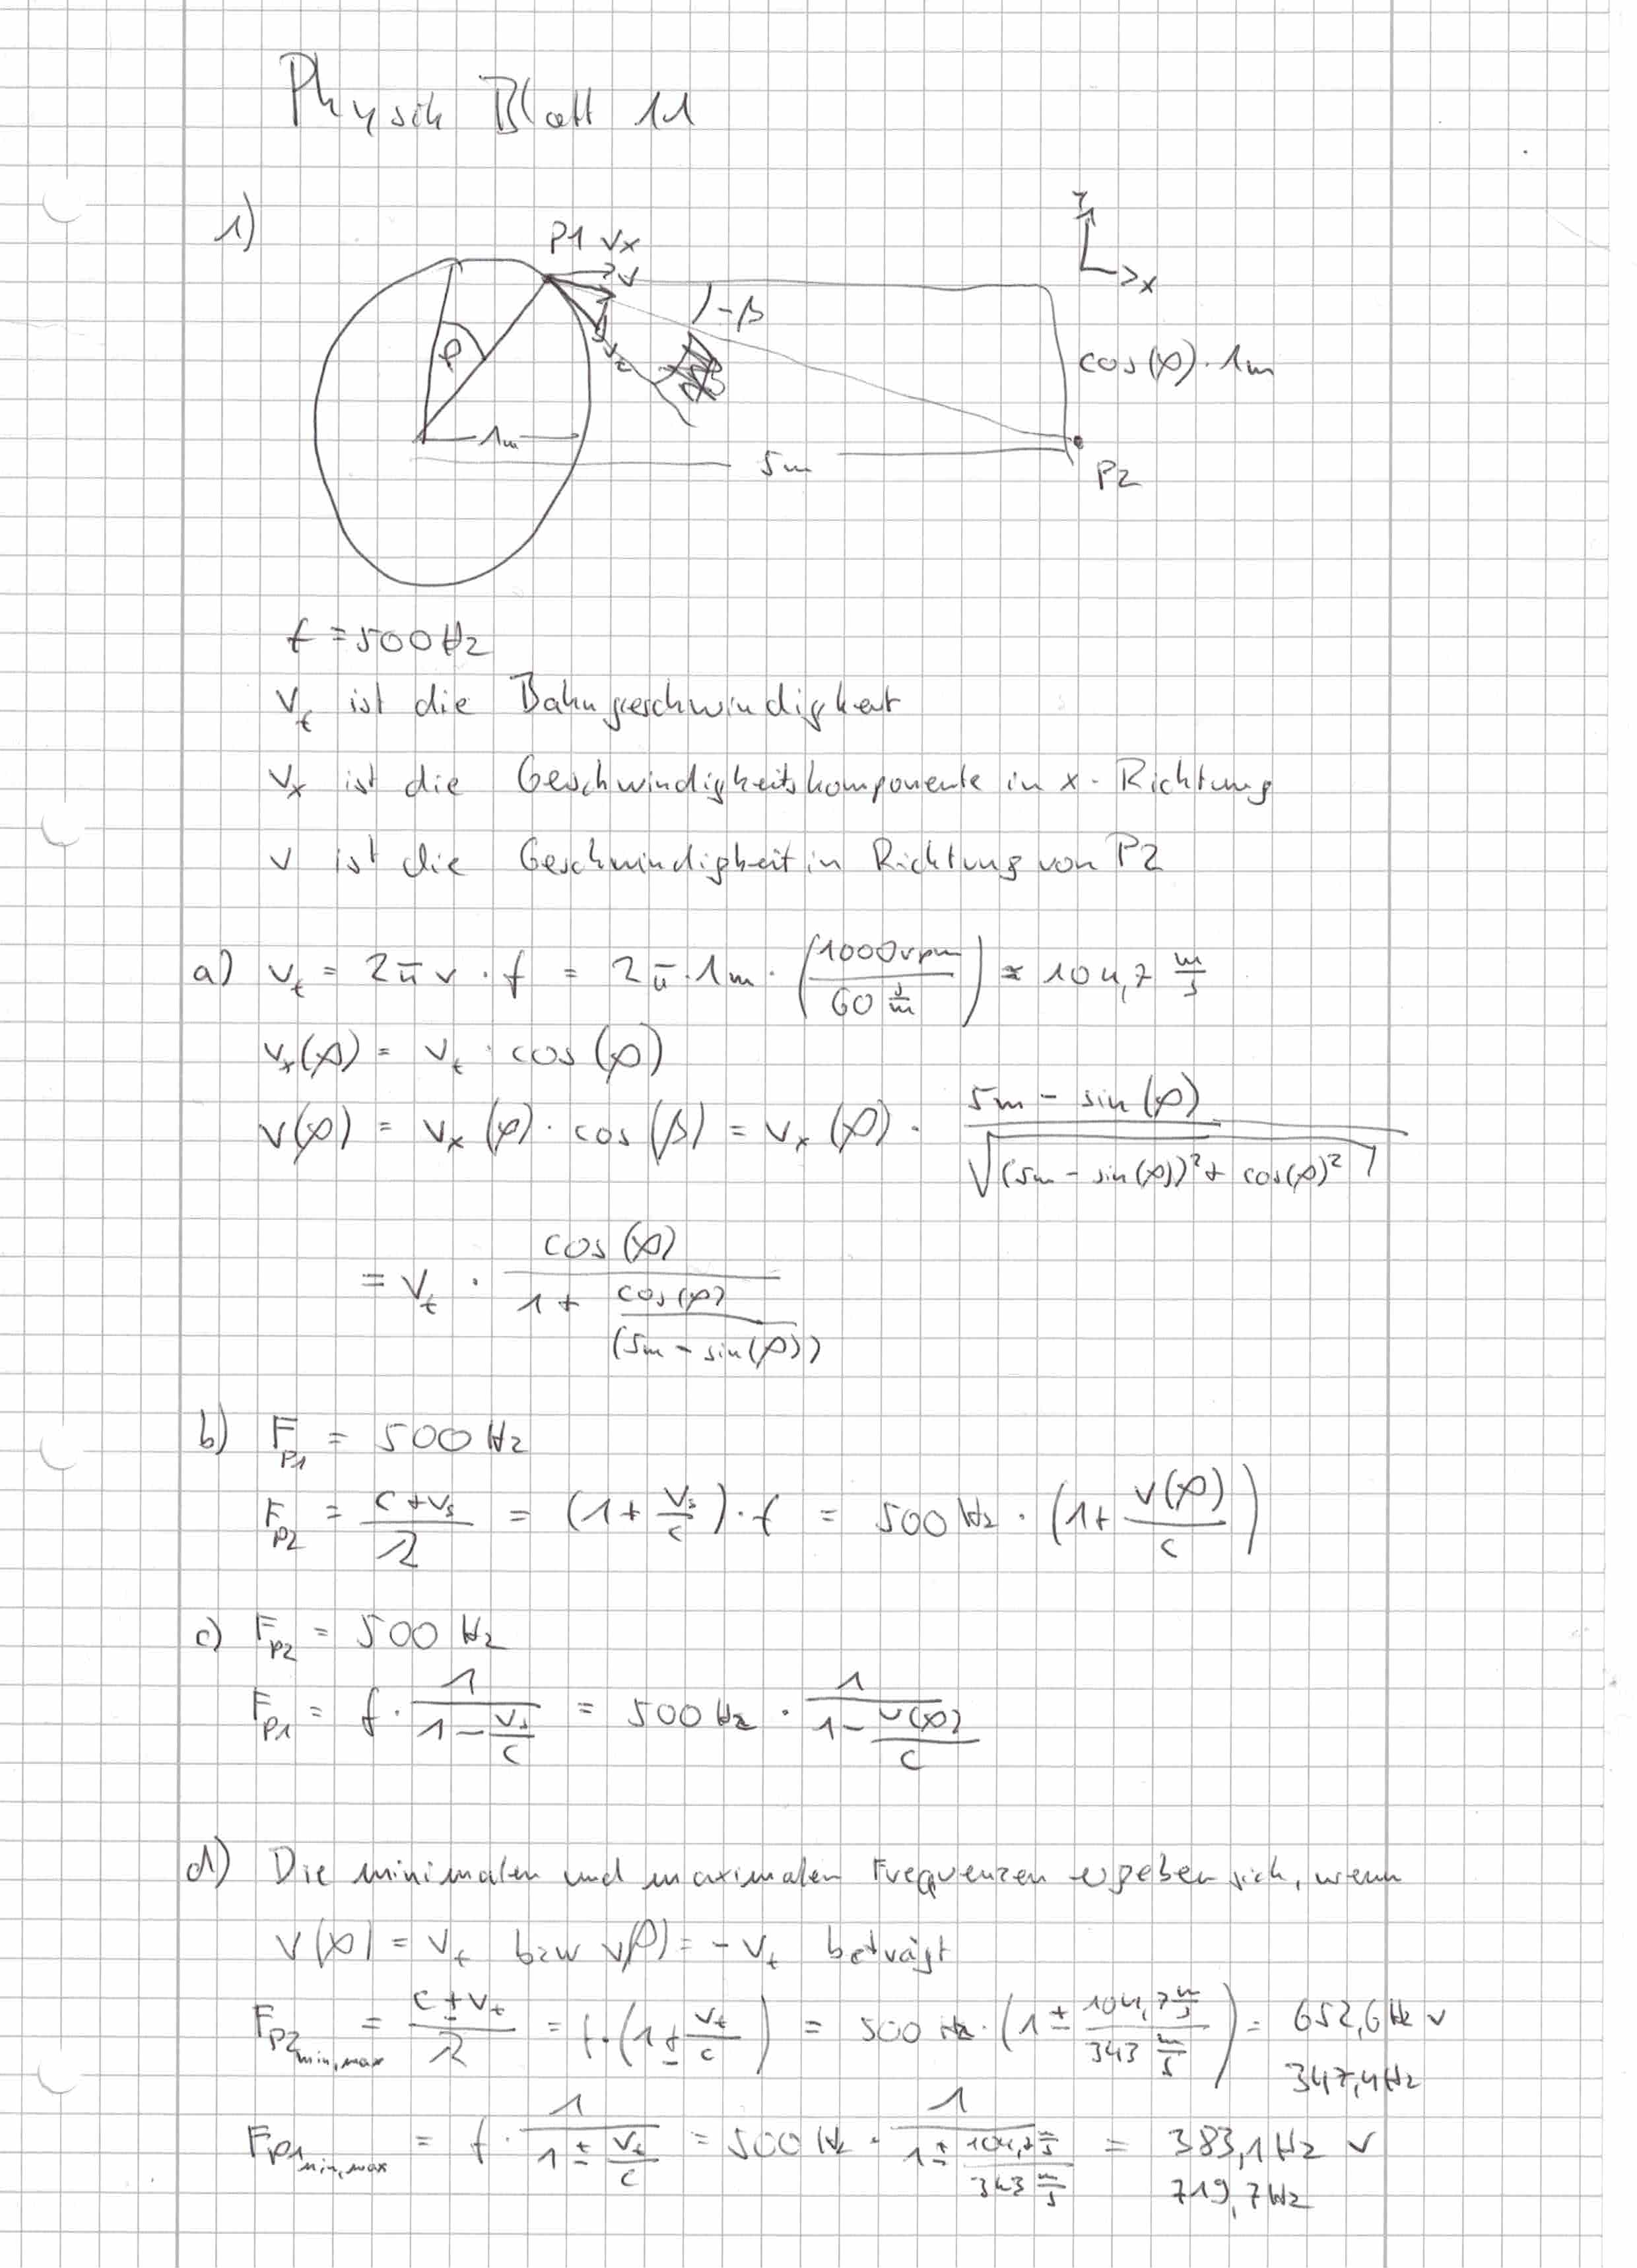 Physik Blatt 11
1)
P1 vx
v
vt
φ
1m
5m
-β
y
x
cos(φ)·1m
P2
f = 500Hz
vt ist die Bahngeschwindigkeit
vx ist die Geschwindigkeitskomponente in x-Richtung
v ist die Geschwindigkeit in Richtung von P2
a) vt = 2πr · f = 2π·1m · (1000rpm / 60 s/m) ≈ 104,7 m/s
vx(φ) = vt · cos(φ)
v(φ) = vx(φ) · cos(β) = vx(φ) · (5m - sin(φ)) / √((5m - sin(φ))² + cos(φ)²)
= vt · cos(φ) / (1 + cos(φ) / (5m - sin(φ)))
b) F_P1 = 500Hz
F_P2 = (c + vs) / λ = (1 + vs/c) · f = 500Hz · (1 + v(φ)/c)
c) F_P2 = 500 Hz
F_P1 = f · 1 / (1 - vs/c) = 500Hz · 1 / (1 - v(φ)/c)
d) Die minimalen und maximalen Frequenzen ergeben sich, wenn
v(φ) = vt bzw v(φ) = -vt beträgt
F_P2 min,max = (c ± vt) / λ = f · (1 ± vt/c) = 500 Hz · (1 ± 104,7 m/s / 343 m/s) = 652,6Hz v
347,4Hz
F_P1 min,max = f · 1 / (1 ± vt/c) = 500Hz · 1 / (1 ± 104,7 m/s / 343 m/s) = 383,1Hz v
719,7Hz